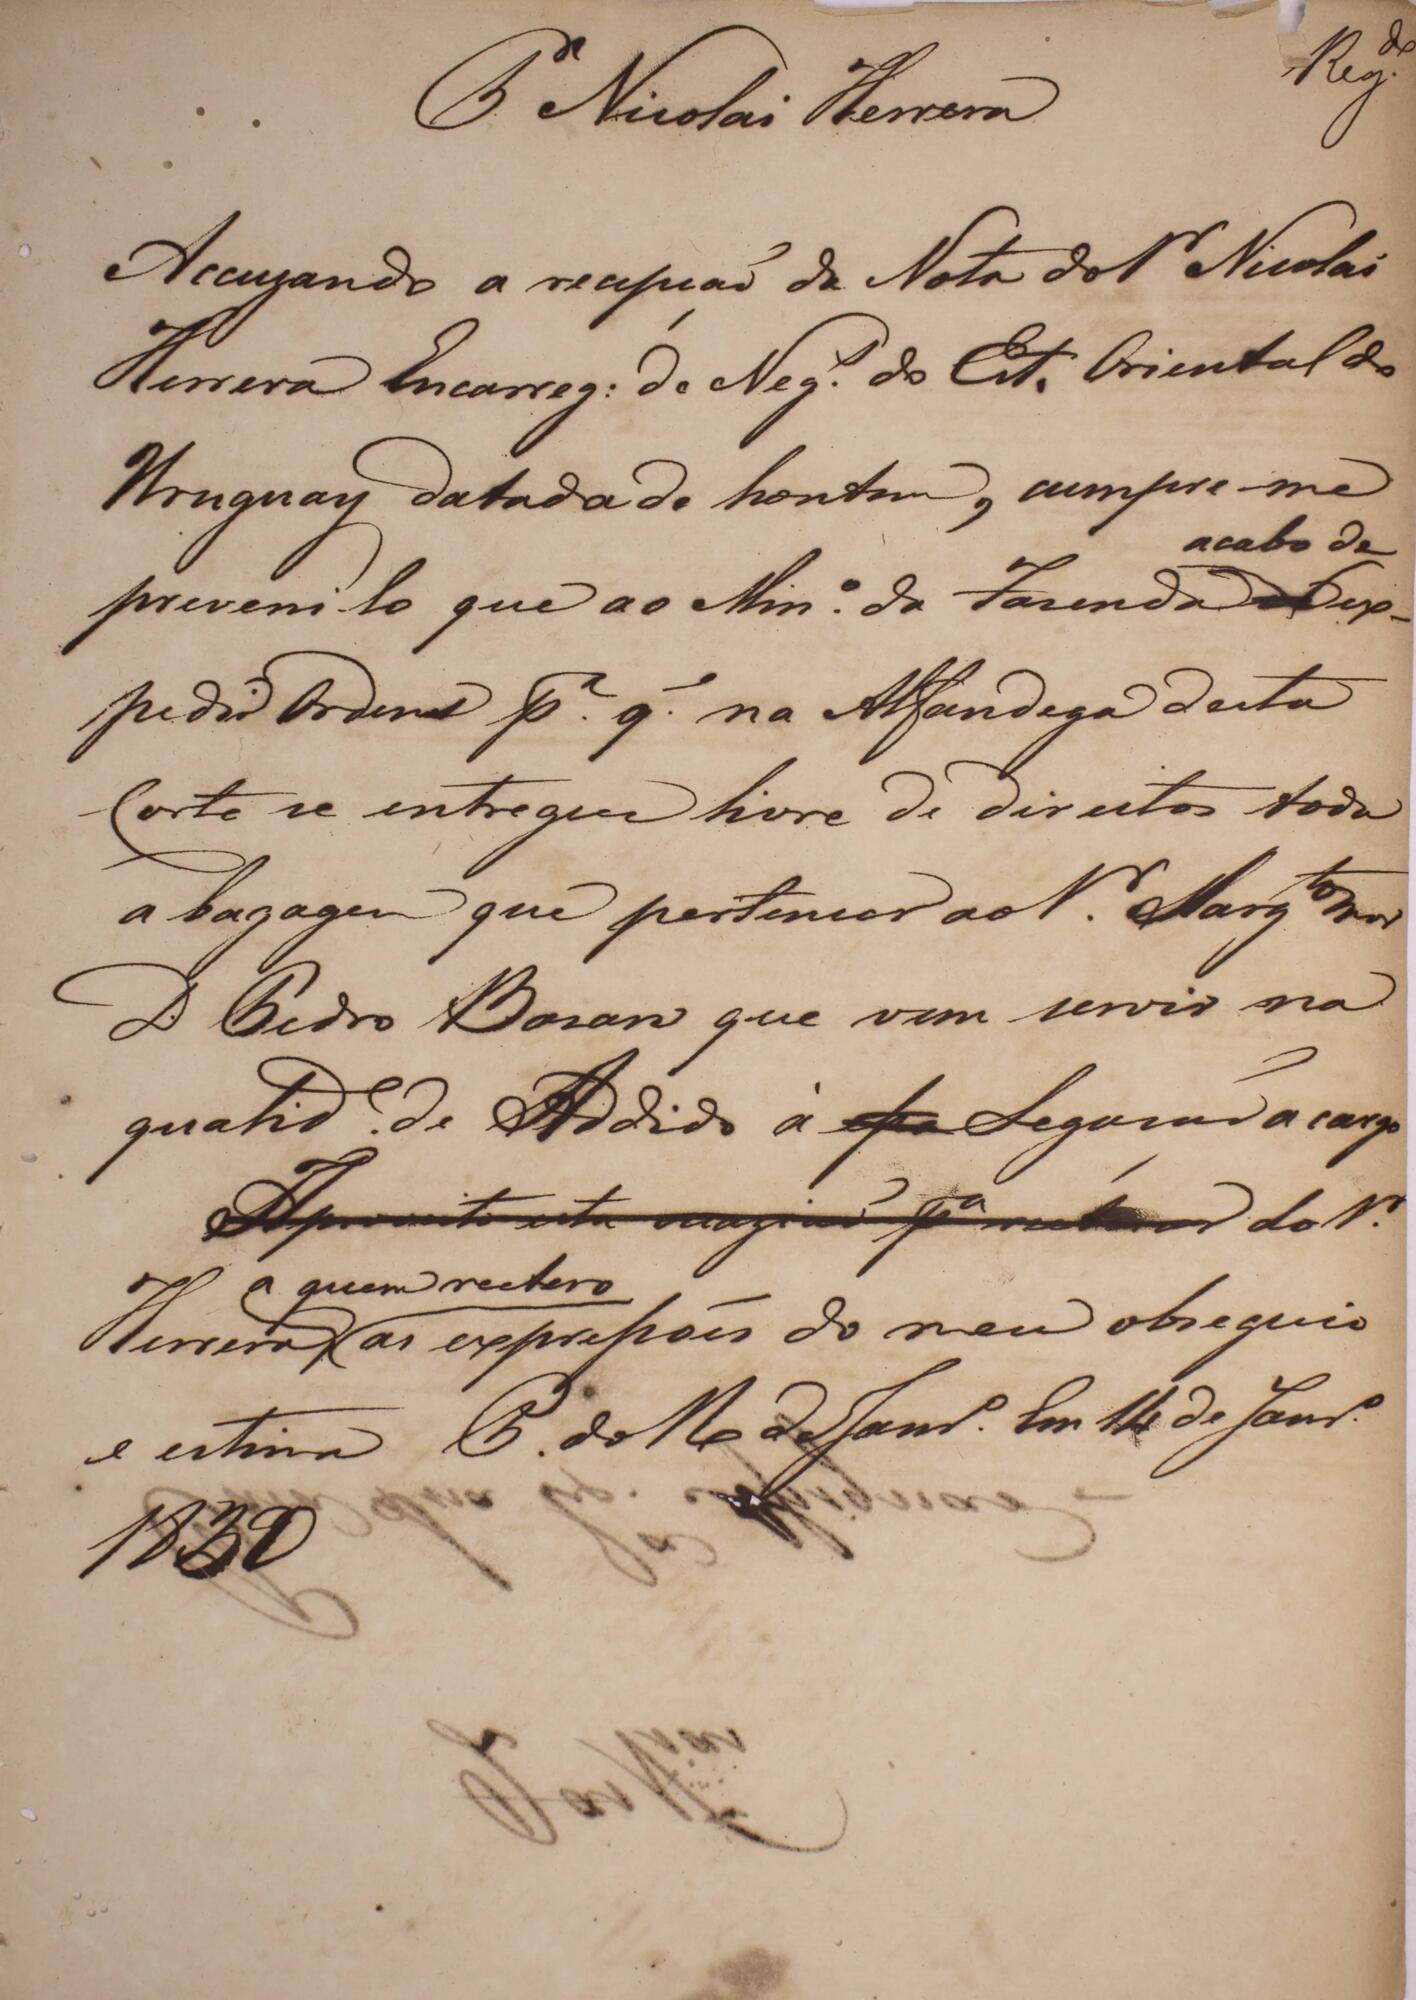 Reg.do
Pa Nicolas Herrera
Accuzando a recepçaõ da Nota do Sr Nicolas
Herrera Encarreg: de Neg.s do Est. Oriental do
Uruguay datada de hontem, cumpre-me
acabo de
prevenilo que ao Min.o da Fazenda ex-
pedir Ordens p.a q.e na Alfandega desta
Corte se entregue livre de direitos toda
a bagagem que pertencer ao Sr.
D. Pedro Basan que vem servir na
qualid.e de Addido á Legacaõ a cargo
Aproveito esta occaziaõ p.a reiterar do Sr.
a quem reitero
Herrera, as expressoẽs do meu obsequio
e estima P. do R. de Janr.o Em 14 de Janr.o
1830